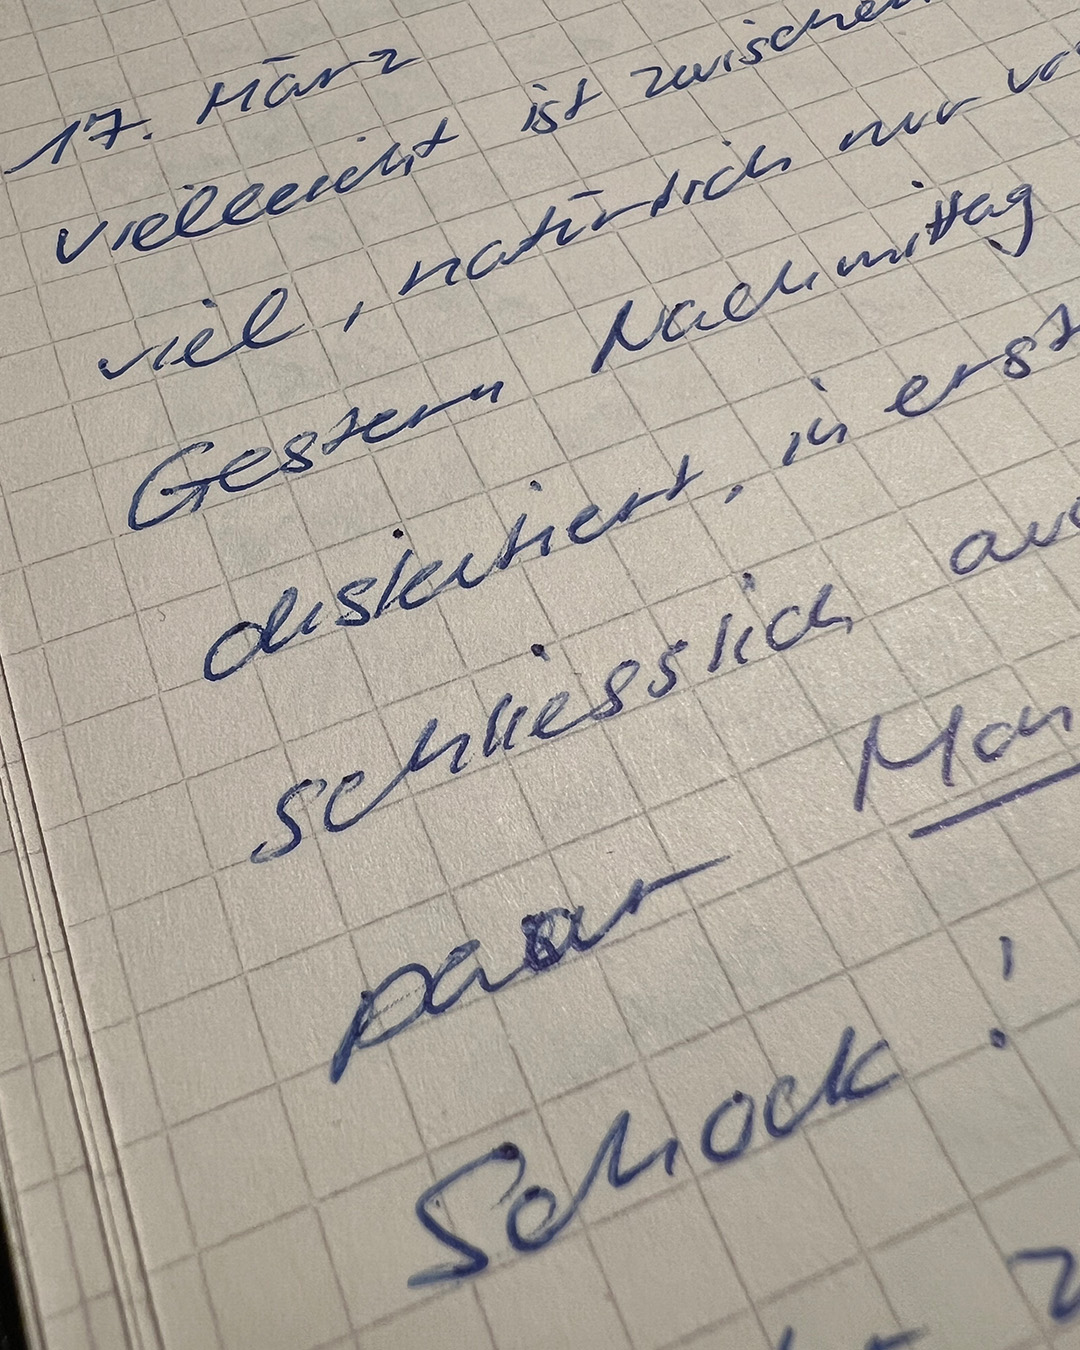 17. März
vielleicht ist zwischen
viel, natürlich nur
Gestern Nachmittag
diskutiert, in
schliesslich
paar
Schock!